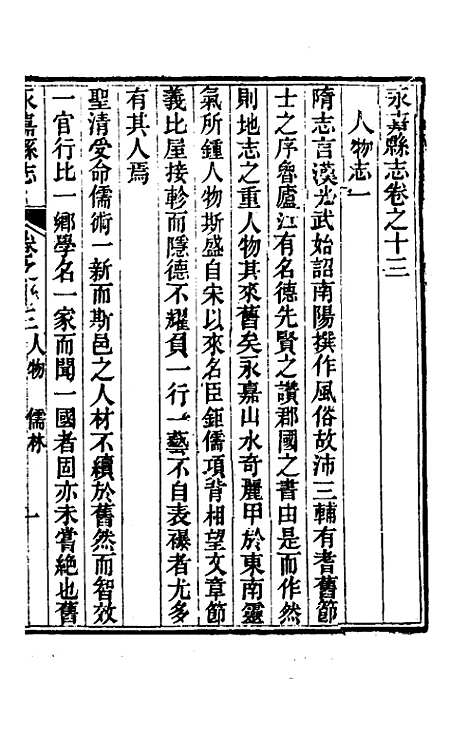 永嘉縣志卷之十三
人物志一
隋志言漢光武始詔南陽撰作風俗故沛三輔有耆舊節
士之序魯廬江有名德先賢之讚郡國之書由是而作然
則地志之重人物其來舊矣永嘉山水奇麗甲於東南靈
氣所鍾人物斯盛自宋以來名臣鉅儒項背相望文章節
義比屋接軫而隱德不耀負一行一藝不自表襮者尤多
有其人焉
聖清受命儒術一新而斯邑之人材不續於舊然而智效
一官行比一鄉學名一家而聞一國者固亦未嘗絶也舊
永嘉縣志 卷之十三 人物 儒林 一